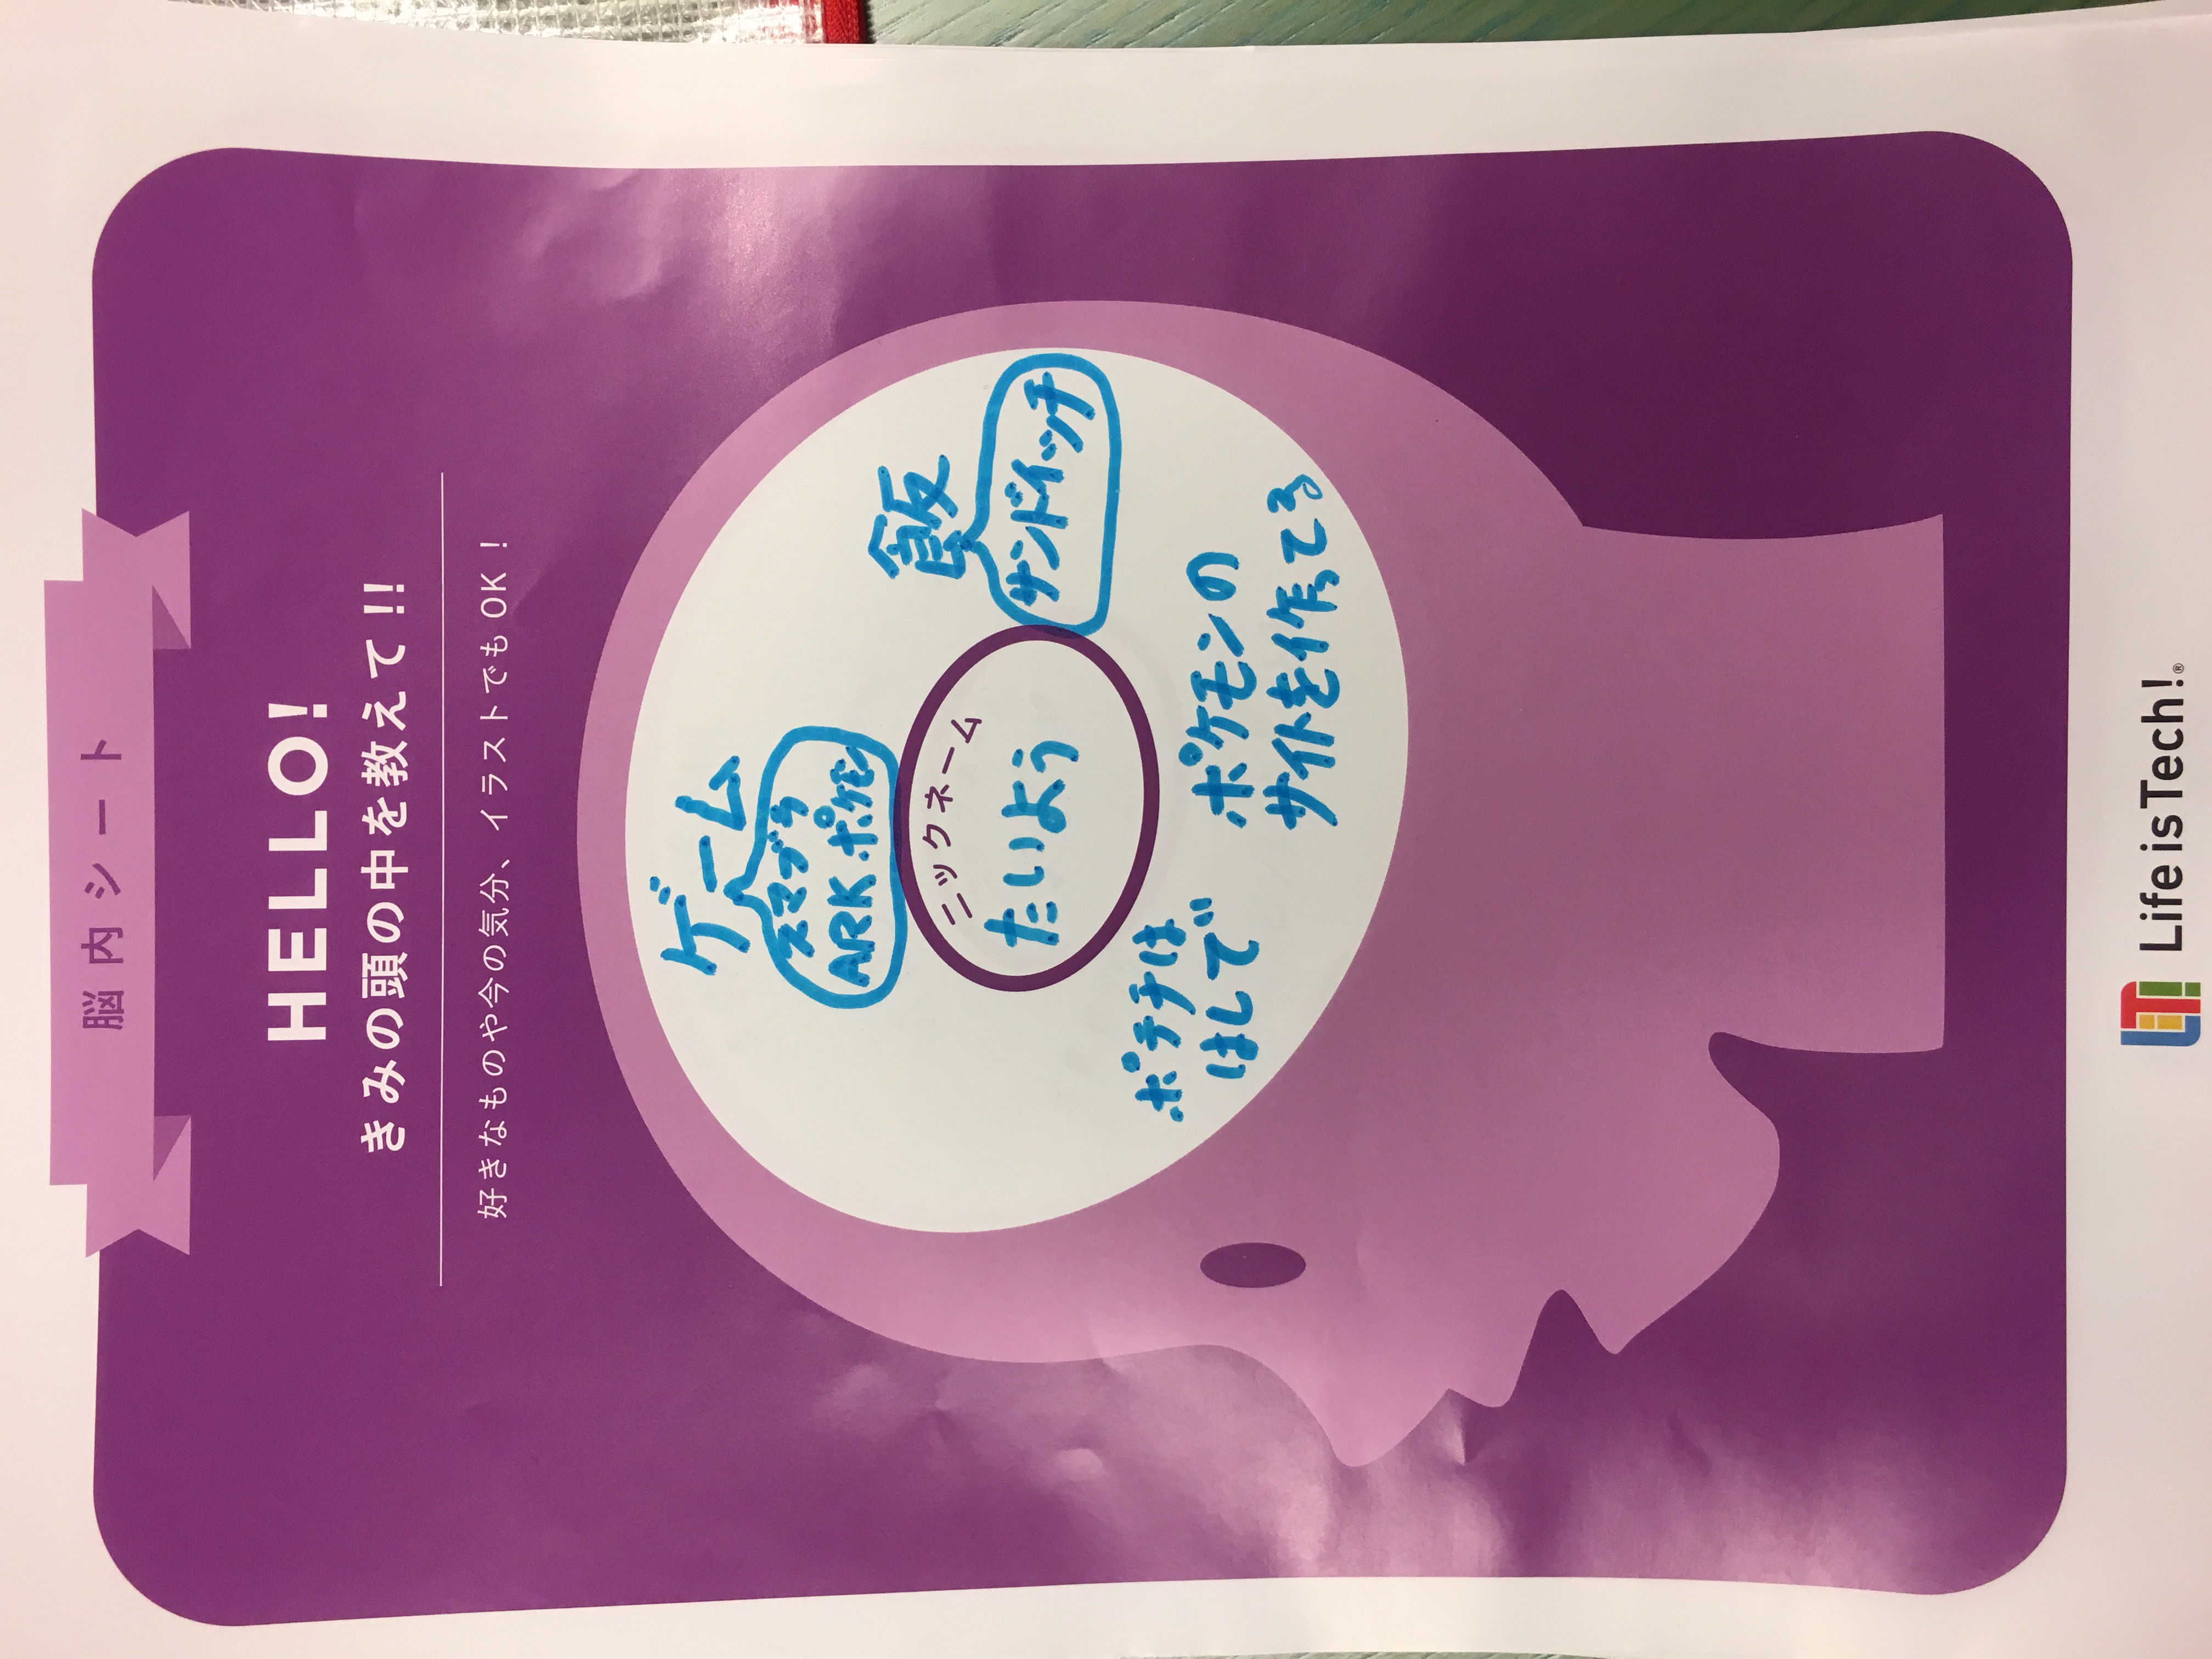 脳内シート
HELLO!
きみの頭の中を教えて!!
好きなものや今の気分、イラストでもOK！
ゲーム
スマブラ
ARK ポケモン
飯
サンドイッチ
ニックネーム
たいよう
ポテチは
はしで
ポケモンの
サイトを作ってる
LiT!
Life is Tech!®